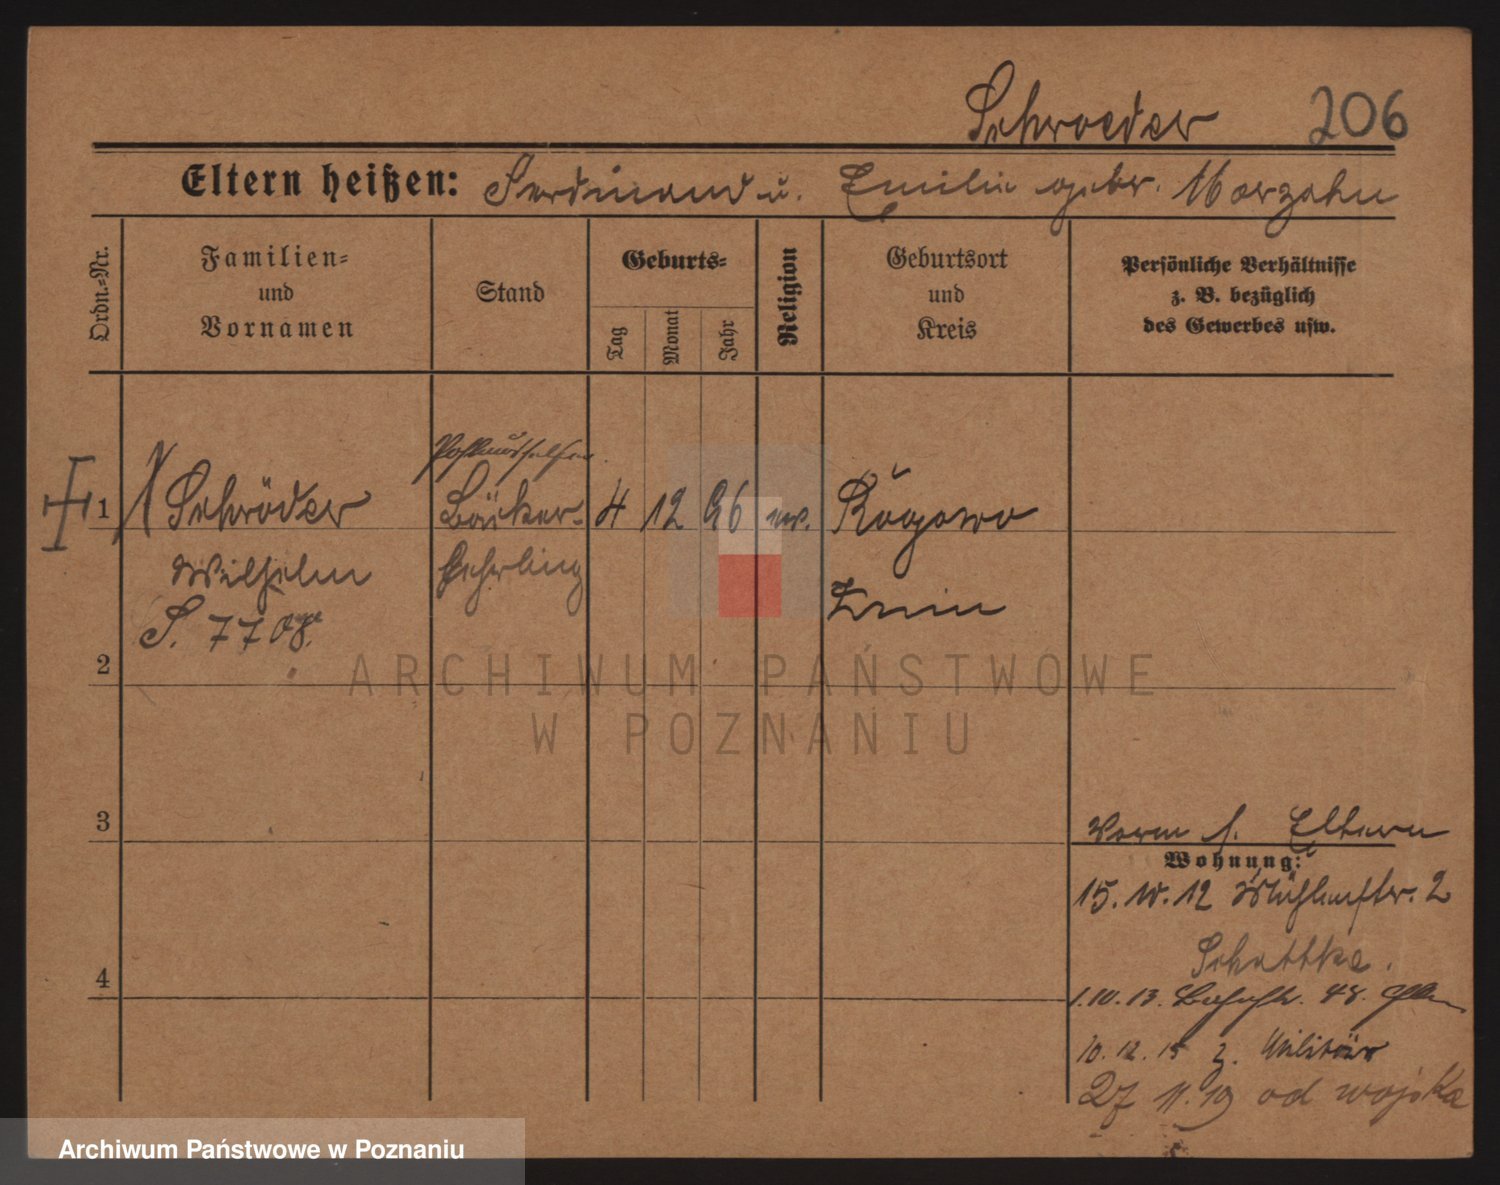 Schroeder 206
Eltern heißen: Ferdinand u. Emilie gebr. Marzahn
Ordn.-Nr.
Familien-
und
Vornamen
Stand
Geburts-
Tag
Monat
Jahr
Religion
Geburtsort
und
Kreis
Persönliche Verhältnisse
z. B. bezüglich
des Gewerbes usw.
Postaushelfer
1 Schröder Bäcker- 4 12 96 ev. Rogowo
Wilhelm Lehrling Znin
S. 7708.
2
ARCHIWUM PAŃSTWOWE
W POZNANIU
3
Vorm s. Eltern
Wohnung:
15.10.12 Mühlenstr. 2
Schattka.
4
1.10.13. 48.
10.12.15 z. Militär
27 11.19 od wojska
Archiwum Państwowe w Poznaniu